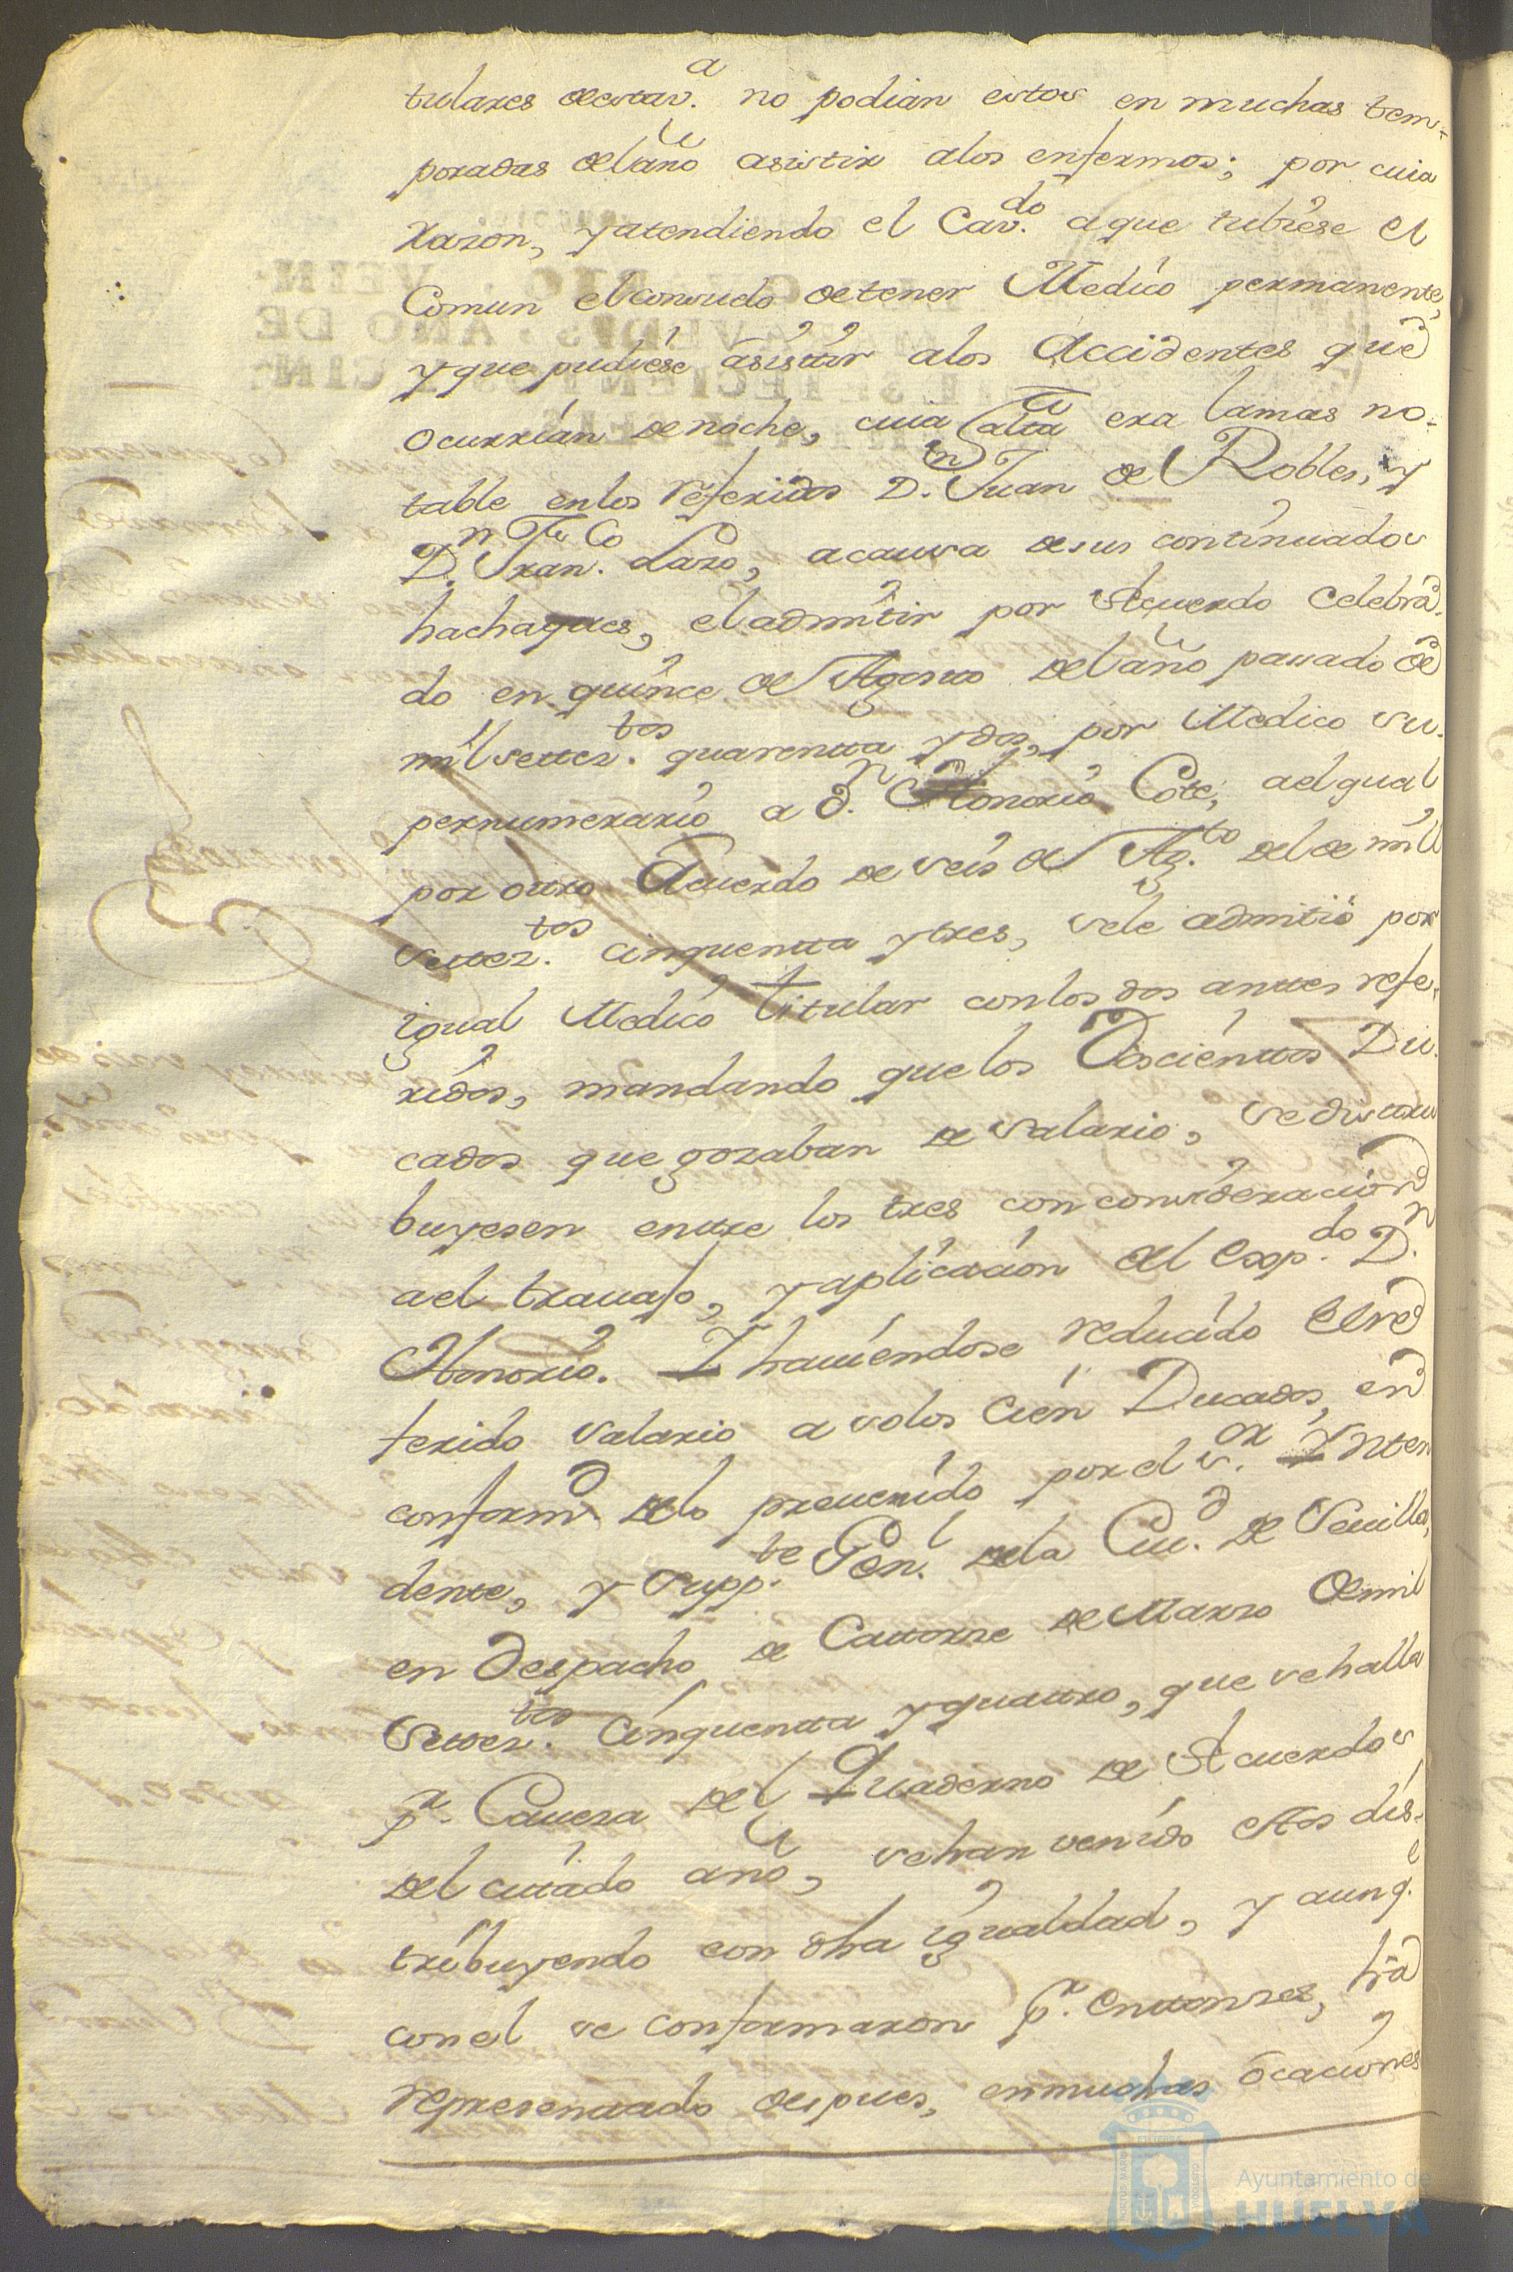 tulares de esta v.ª no podian estos en muchas tem-
poradas del año asistir alos enfermos; por cuia
razon, y atendiendo el Cav.do a que tubiese el
Comun el consuelo de tener Medico permanente,
y que pudiese asistir alos Accidentes que
ocurrian de noche, cuia falta era la mas no-
table en los referidos D.n Juan de Robles, y
D.n Fran.co Lazo, a causa de sus continuados
hachaques, el admitir por Acuerdo Celebra-
do en quince de Agosto del año pasado de
mil settez.tos quarentta y dos, por Medico su-
pernumerario a d.n Honorio Cote, a el qual
por ottro Acuerdo de seis de Ag.to del de mill
settez.tos cinquentta y tres, se le admitió por
igual Medico titular con los dos antes refe-
ridos, mandando que los Doscienttos Du-
cados que gozaban de salario, se disttri
buyesen enttre los tres con consideracion
a el travajo, y aplicacion del exp.do D.n
Honorio. Y haviendose reducido el re
ferido salario a solos Cien Ducados, en
conformd. de lo prevenido por el s.or Inten
dente, y Supp.te Gen.l de la Ciu.d de Sevilla,
en Despacho de Cattorze de Marzo de mil
settez.tos Cinquentta y quattro, que se halla
p.r Caveza del Quaderno de Acuerdos
del cittado año, se han venido estos dis-
tribuyendo con dha igualdad, y aunq.e
con el se conformaron p.r enttonzes, ha
representtado despues, en muchas ocaciones
Ayuntamiento de
HUELVA